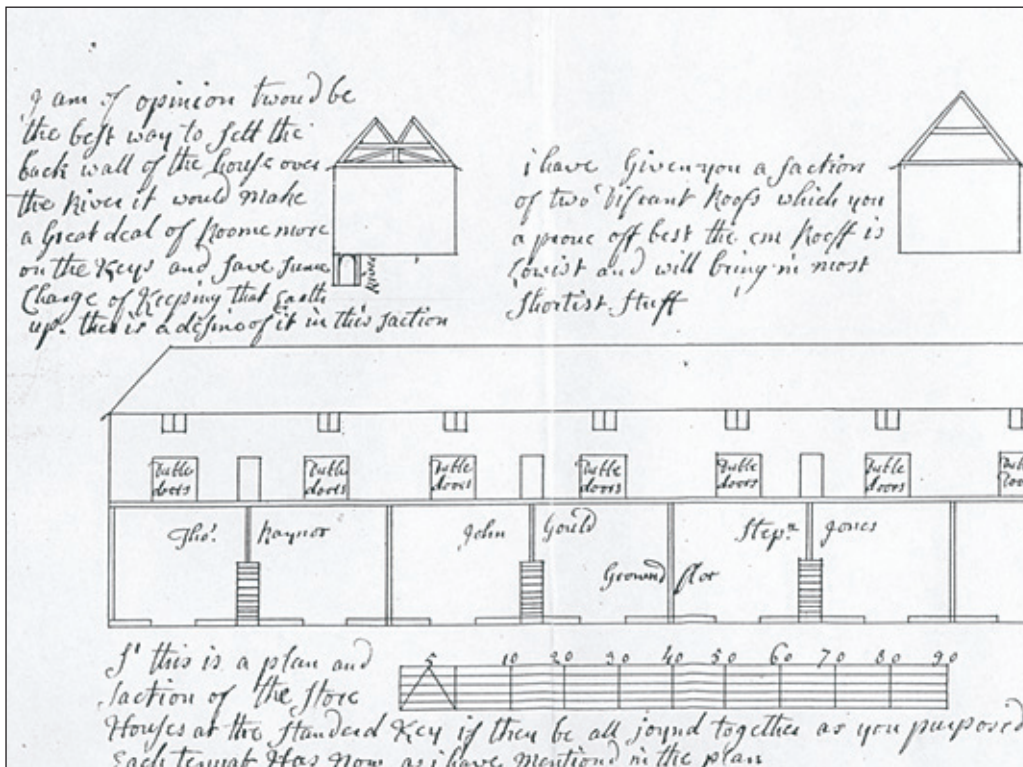 I am of opinion twoud be
the best way to sett the
back wall of the house over
the River it would make
a Great deal of Roome more
on the Keys and save sume
Charge of Keeping that Earth
up. this is a desine of it in this saction
River
i have Given you a saction
of two Difrant Roofs which you
a prove off best the em Rooff is
lowist and will bring in most
Shortist Stuff
Duble doors
Duble doors
Duble doors
Duble doors
Duble doors
Duble doors
Duble
Tho.s Raynor
John Gould
Step.n Jones
Ground flor
5 10 20 30 40 50 60 70 80 90
S.r this is a plan and
saction of the Store
Houses at the Standerd Key if then be all joynd together as you purposed
Each tennat Has now as i have mentiond in the plan